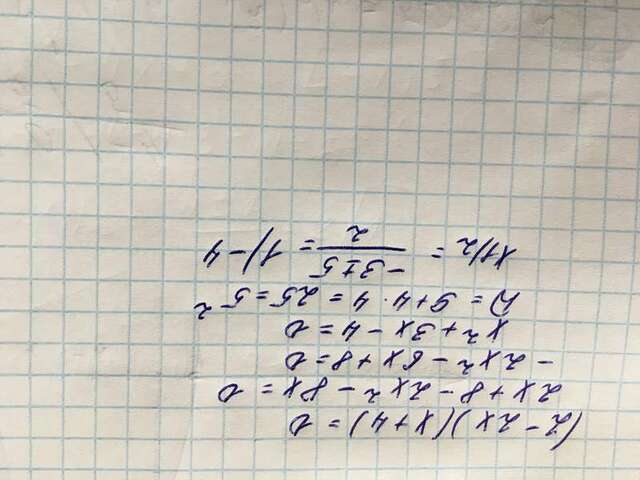 (2-2x)(x+4)=0
2x+8-2x²-8x=0
-2x²-6x+8=0
x²+3x-4=0
D=9+4·4=25=5²
x1/2=(-3±5)/2=1/-4